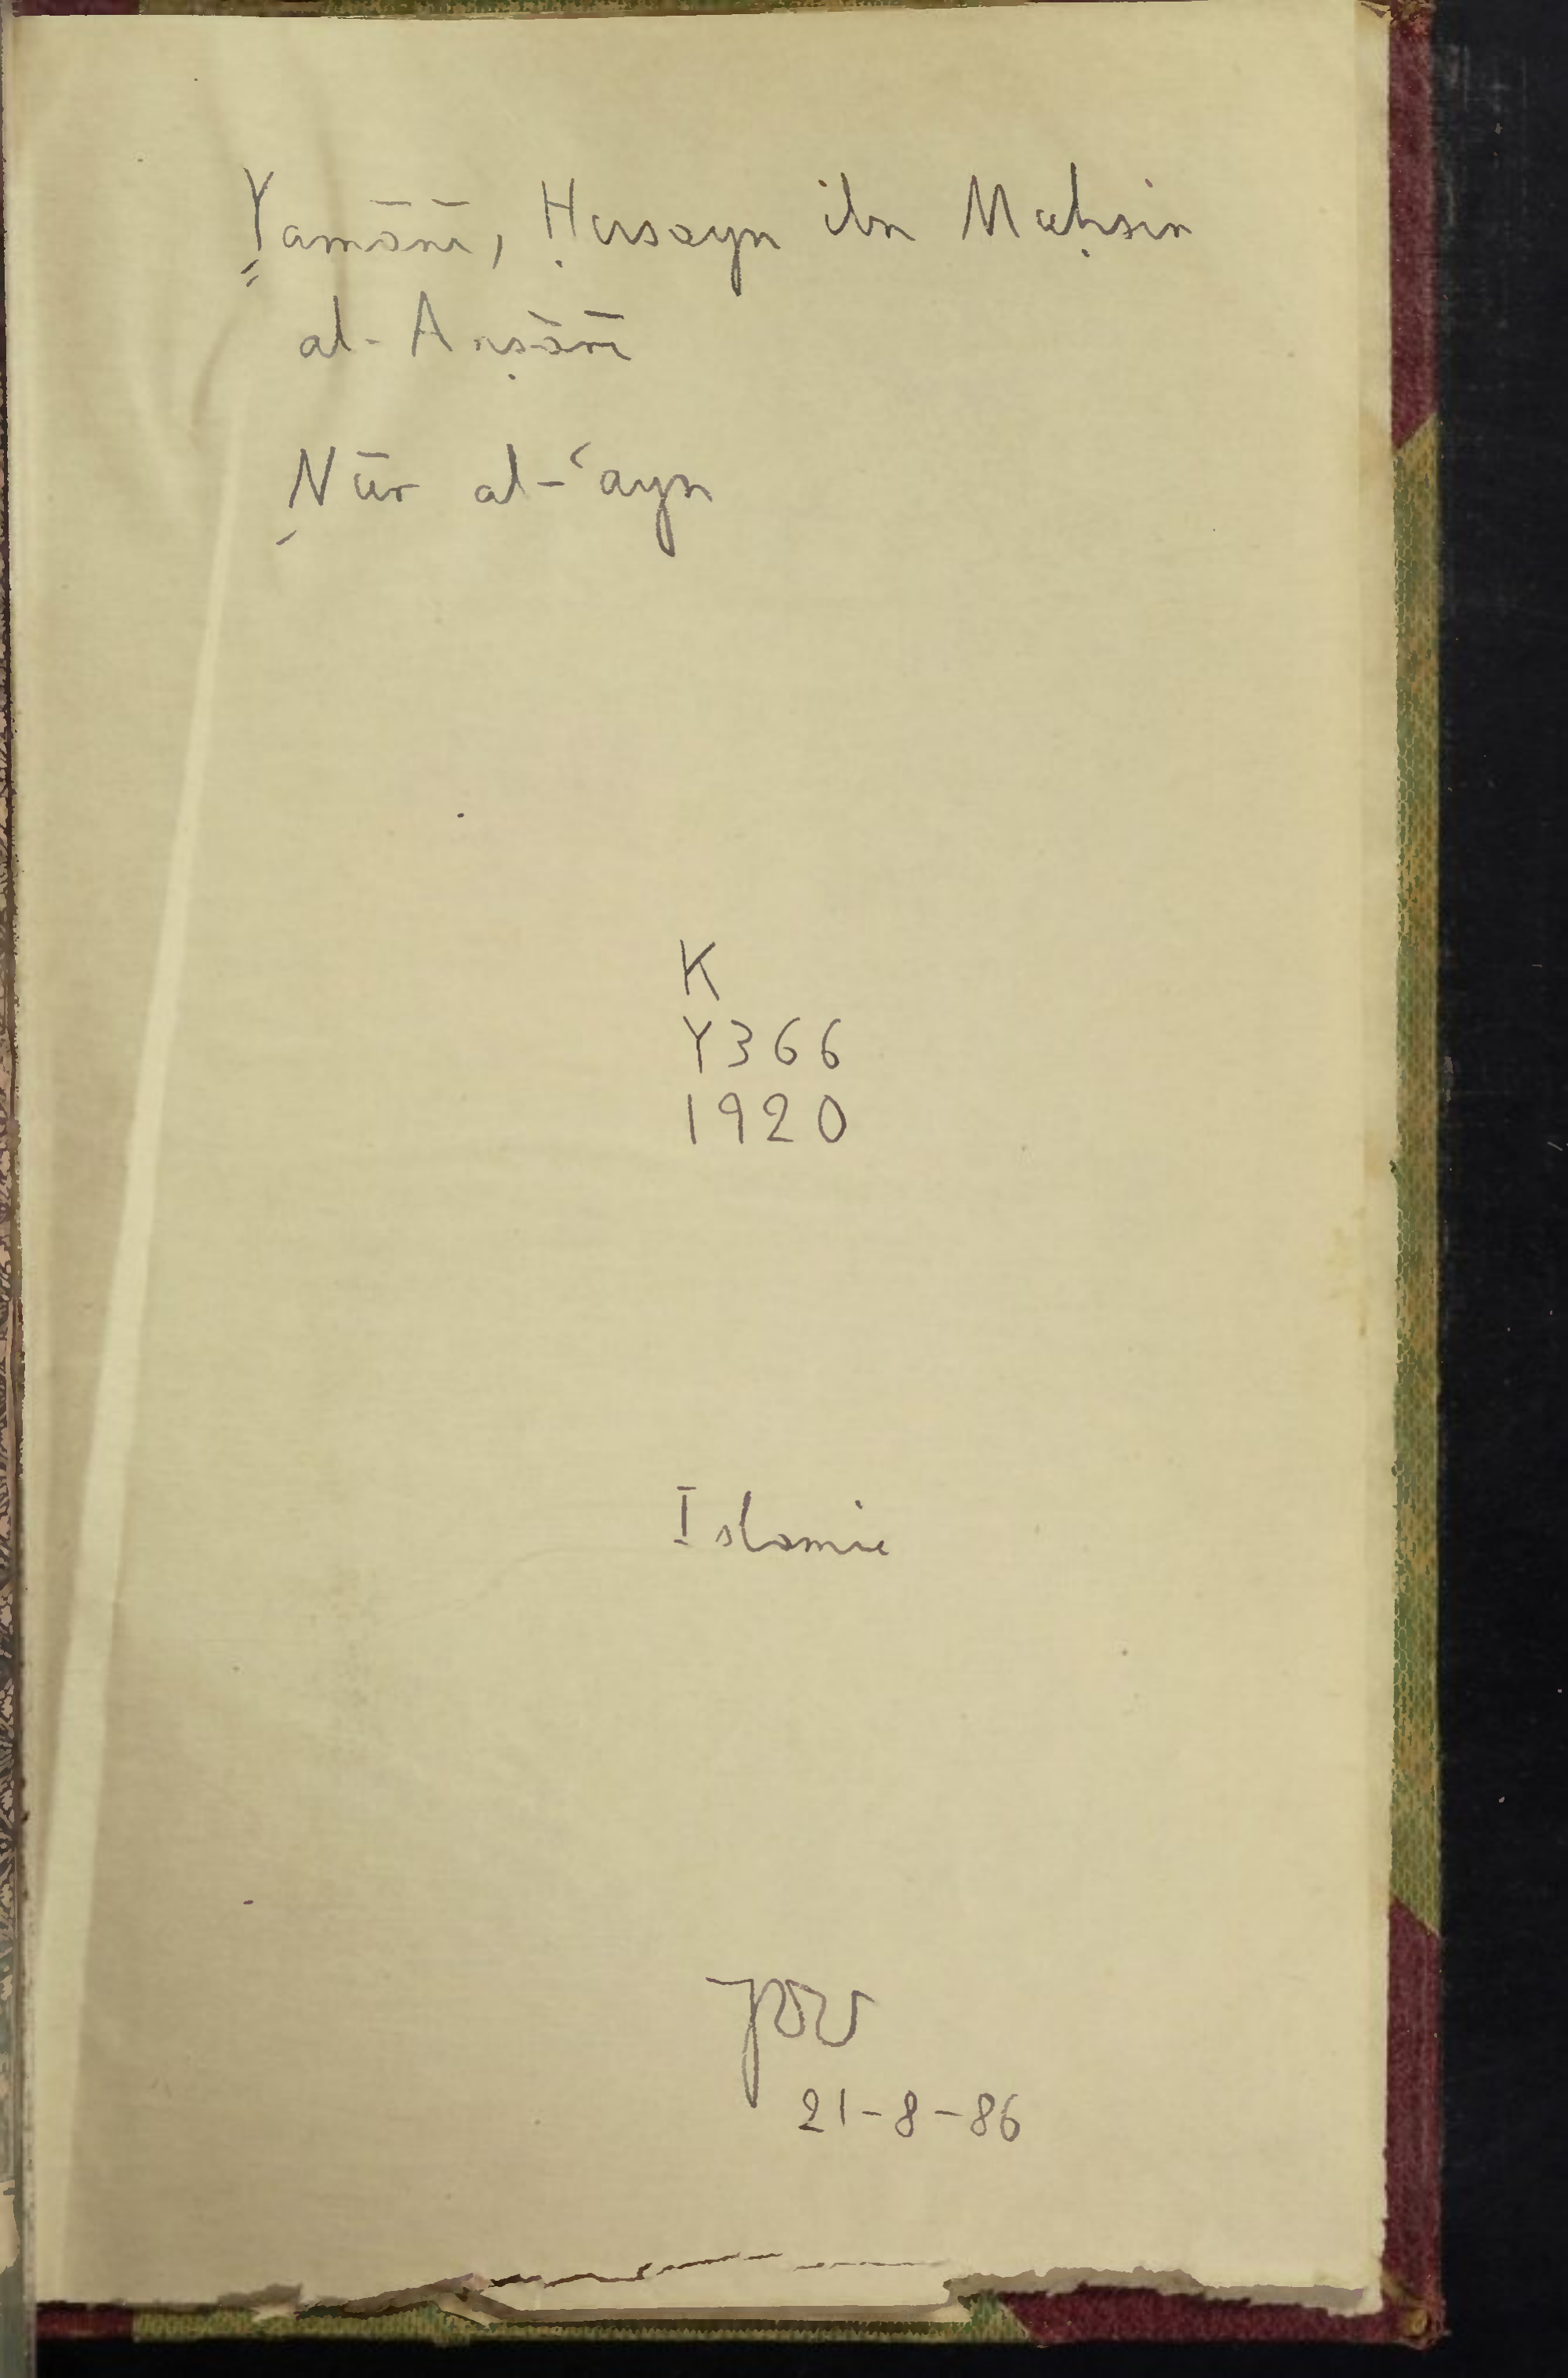 Yamānī, Ḥusayn ibn Muḥsin
al-Anṣārī
Nūr al-ʿayn
K
Y366
1920
Islamic
21-8-86